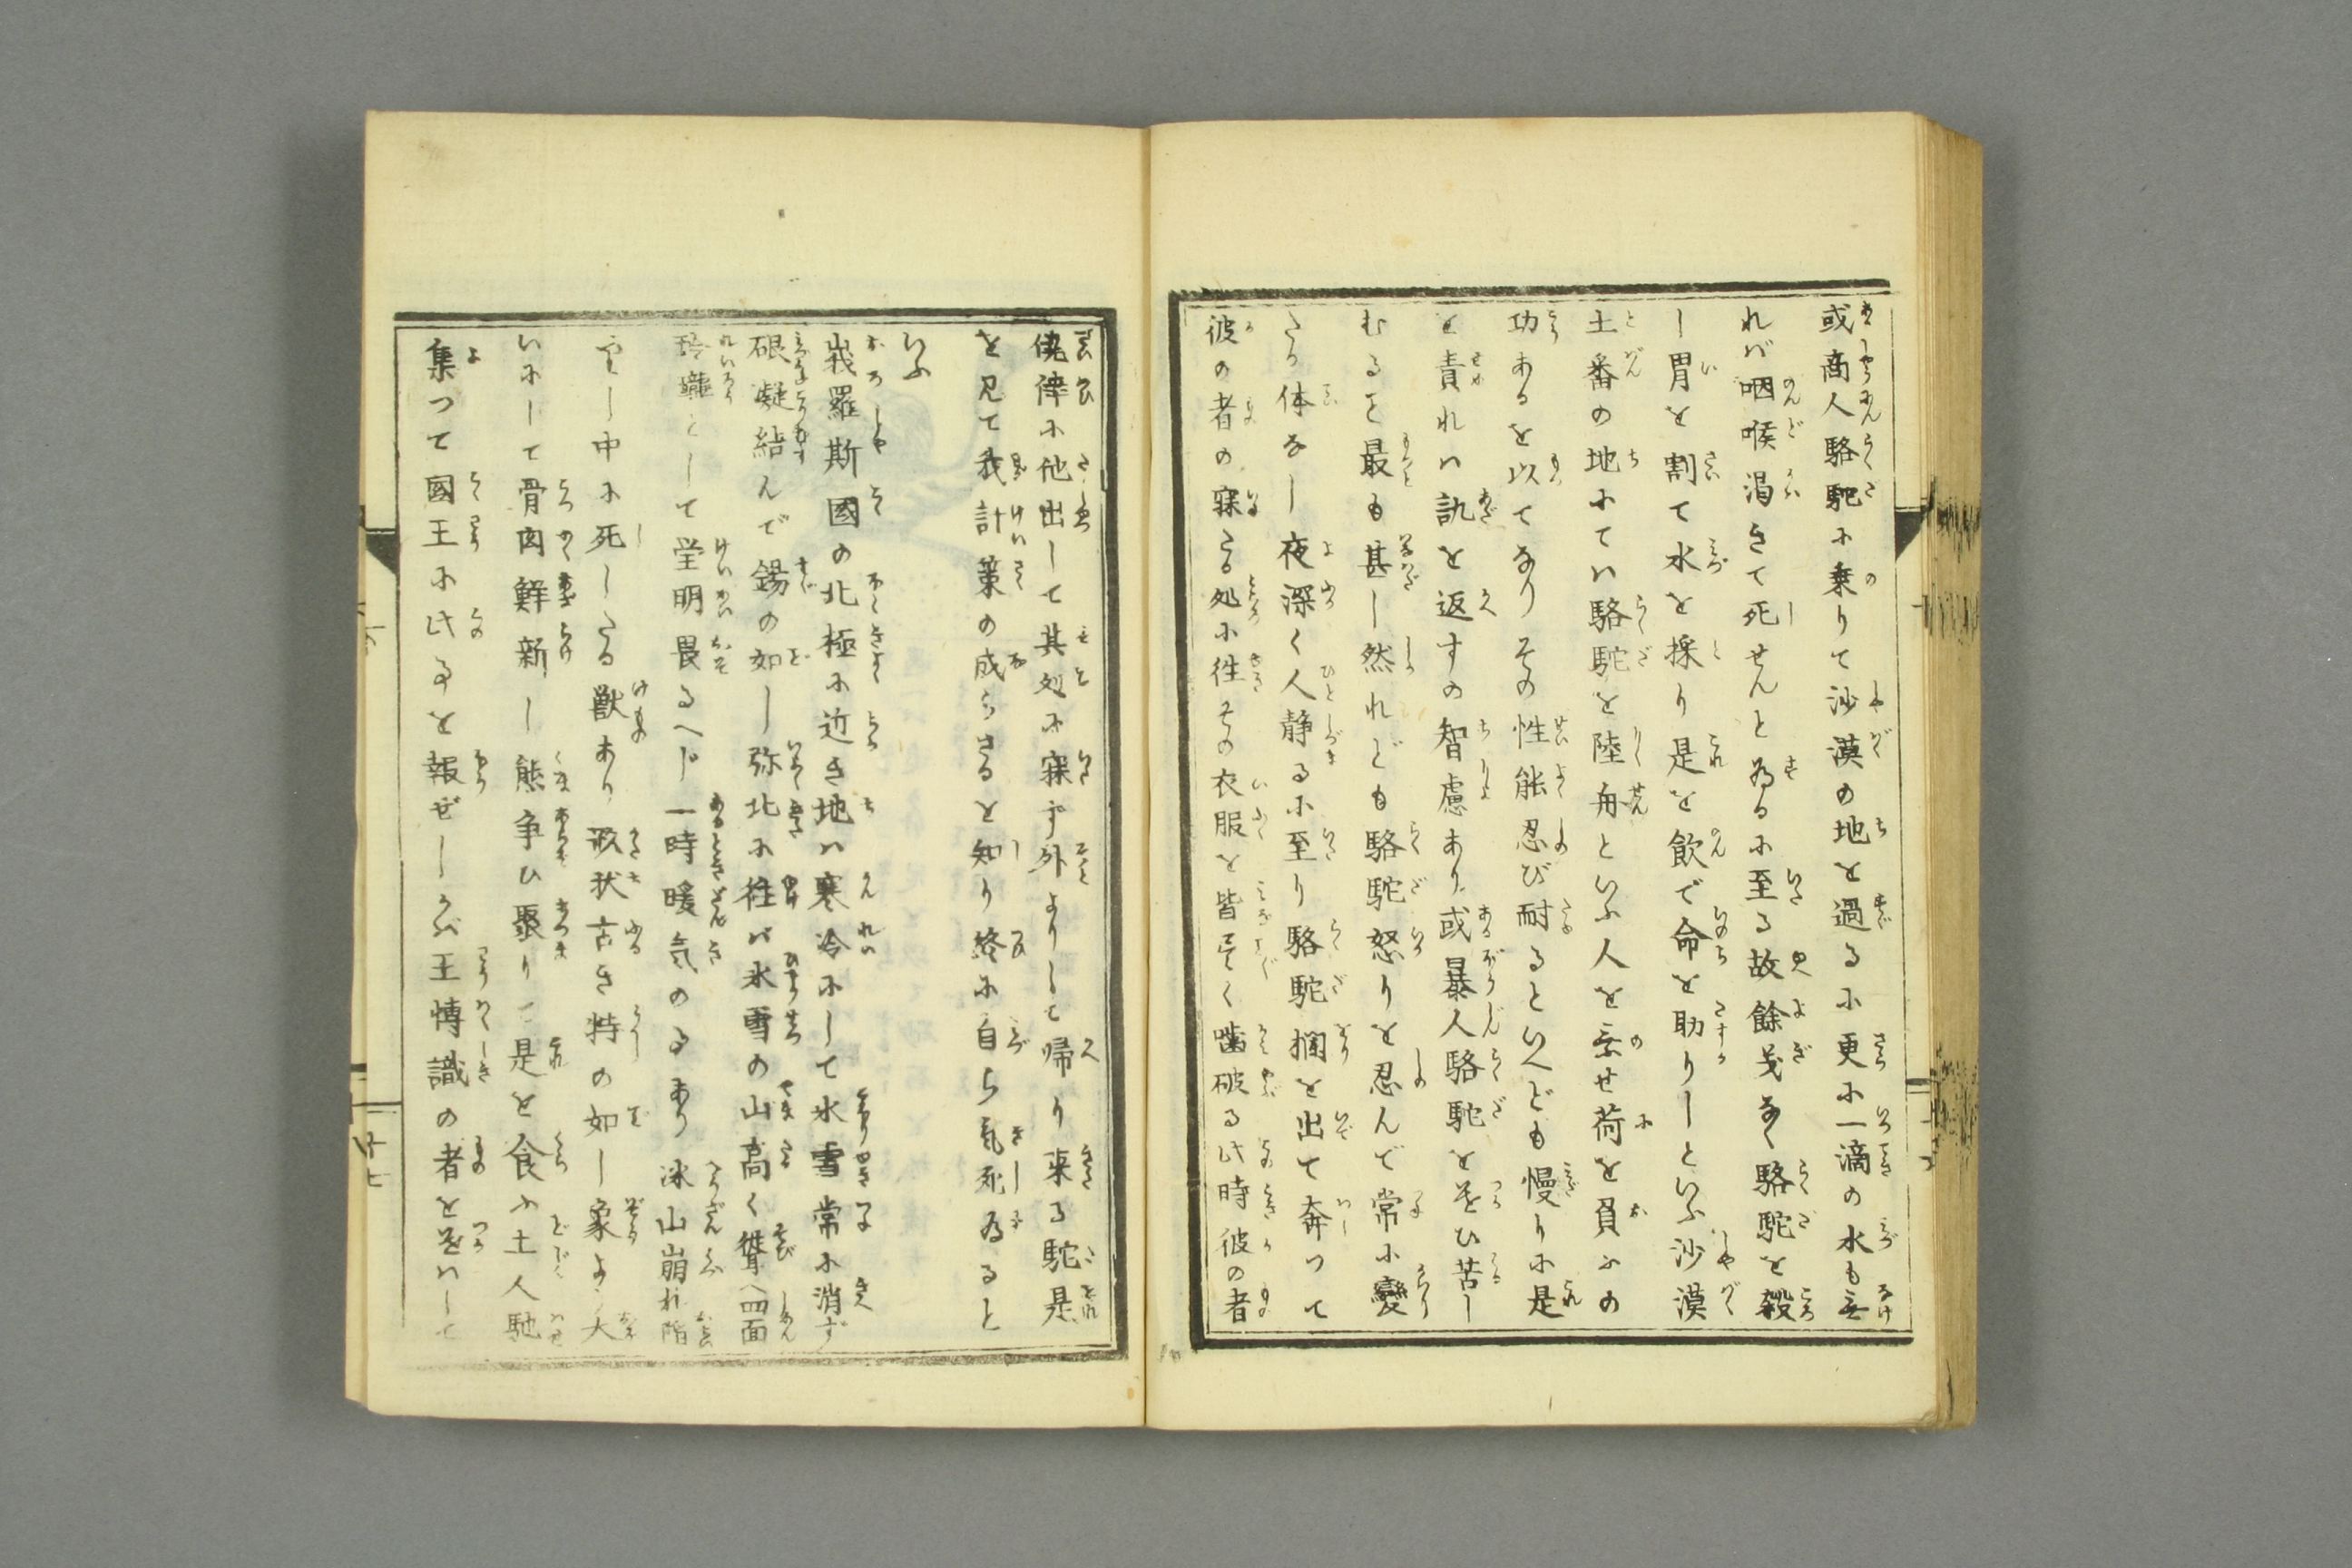 或商人駱駝に乗りて沙漠の地を過るに更に一滴の水も無
れバ咽喉渇きて死せんと為るに至る故餘義なく駱駝を殺
し胃を割て水を採り是を飲で命を助りしといふ沙漠
土番の地にてハ駱駝を陸舟といふ人を乗せ荷を負ふの
功あるを以てなりその性能忍び耐るといへども慢りに是
を責れハ訅を返すの智慮あり或暴人駱駝を遣ひ苦し
むること最も甚し然れども駱駝怒りを忍んで常に變
たる体なし夜深く人静るに至り駱駝欄を出て奔つて
彼の者の寐たる処に徃その衣服を皆尽く噛破る此時彼の者
僥倖に他出して其処に寐ず外よりして帰り来る駝是
を見て我計策の成らざるを知り終に自ら気死為ると
いふ
峩羅斯國の北極に近き地ハ寒冷にして氷雪常に消ず
硍凝結んで錫の如し弥北に徃バ氷雪の山高く聳へ四面
玲瓏として堂明畏るべし一時暖気のることあり氷山崩れ陷
中に死したる獣あり形状古き犄の如し象より大
いにして骨肉鮮新し熊争ひ聚りて是を食ふ土人馳
集つて國王に此ことを報ぜしかバ王博識の者を遣ハして